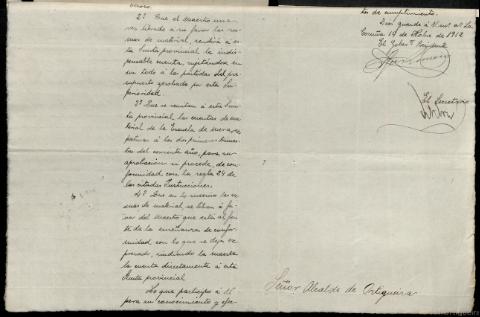 2º Que el maestro una
vez librado á su favor las su-
mas de material, rendirá a es-
ta Junta provincial la indis-
pensable cuenta, sujetándose en
un todo á las partidas del pre-
supuesto aprobado por esta Su-
perioridad.
3º Que se remitan á esta Jun-
ta provincial, las cuentas de ma-
terial de la Escuela de
á los dos primeros trimes-
tres del corriente año, para su
aprobación si procede, de con-
formidad con la regla 24 de
las citadas Instrucciones.
4º Que en lo sucesivo las su-
mas de material, se libren á fa-
vor del maestro que esté al fren-
te de la enseñanza de confor-
midad con lo que se deja ex-
presado, rindiendo la
la cuenta directamente á esta
Junta provincial.
Lo que participo á V.
para su conocimiento y efec-
tos de cumplimiento.
Dios guarde á V. m. a. La
Coruña 14 de Octubre de 1912
El Gober.
El Secretario
Señor Alcalde de Ortigueira